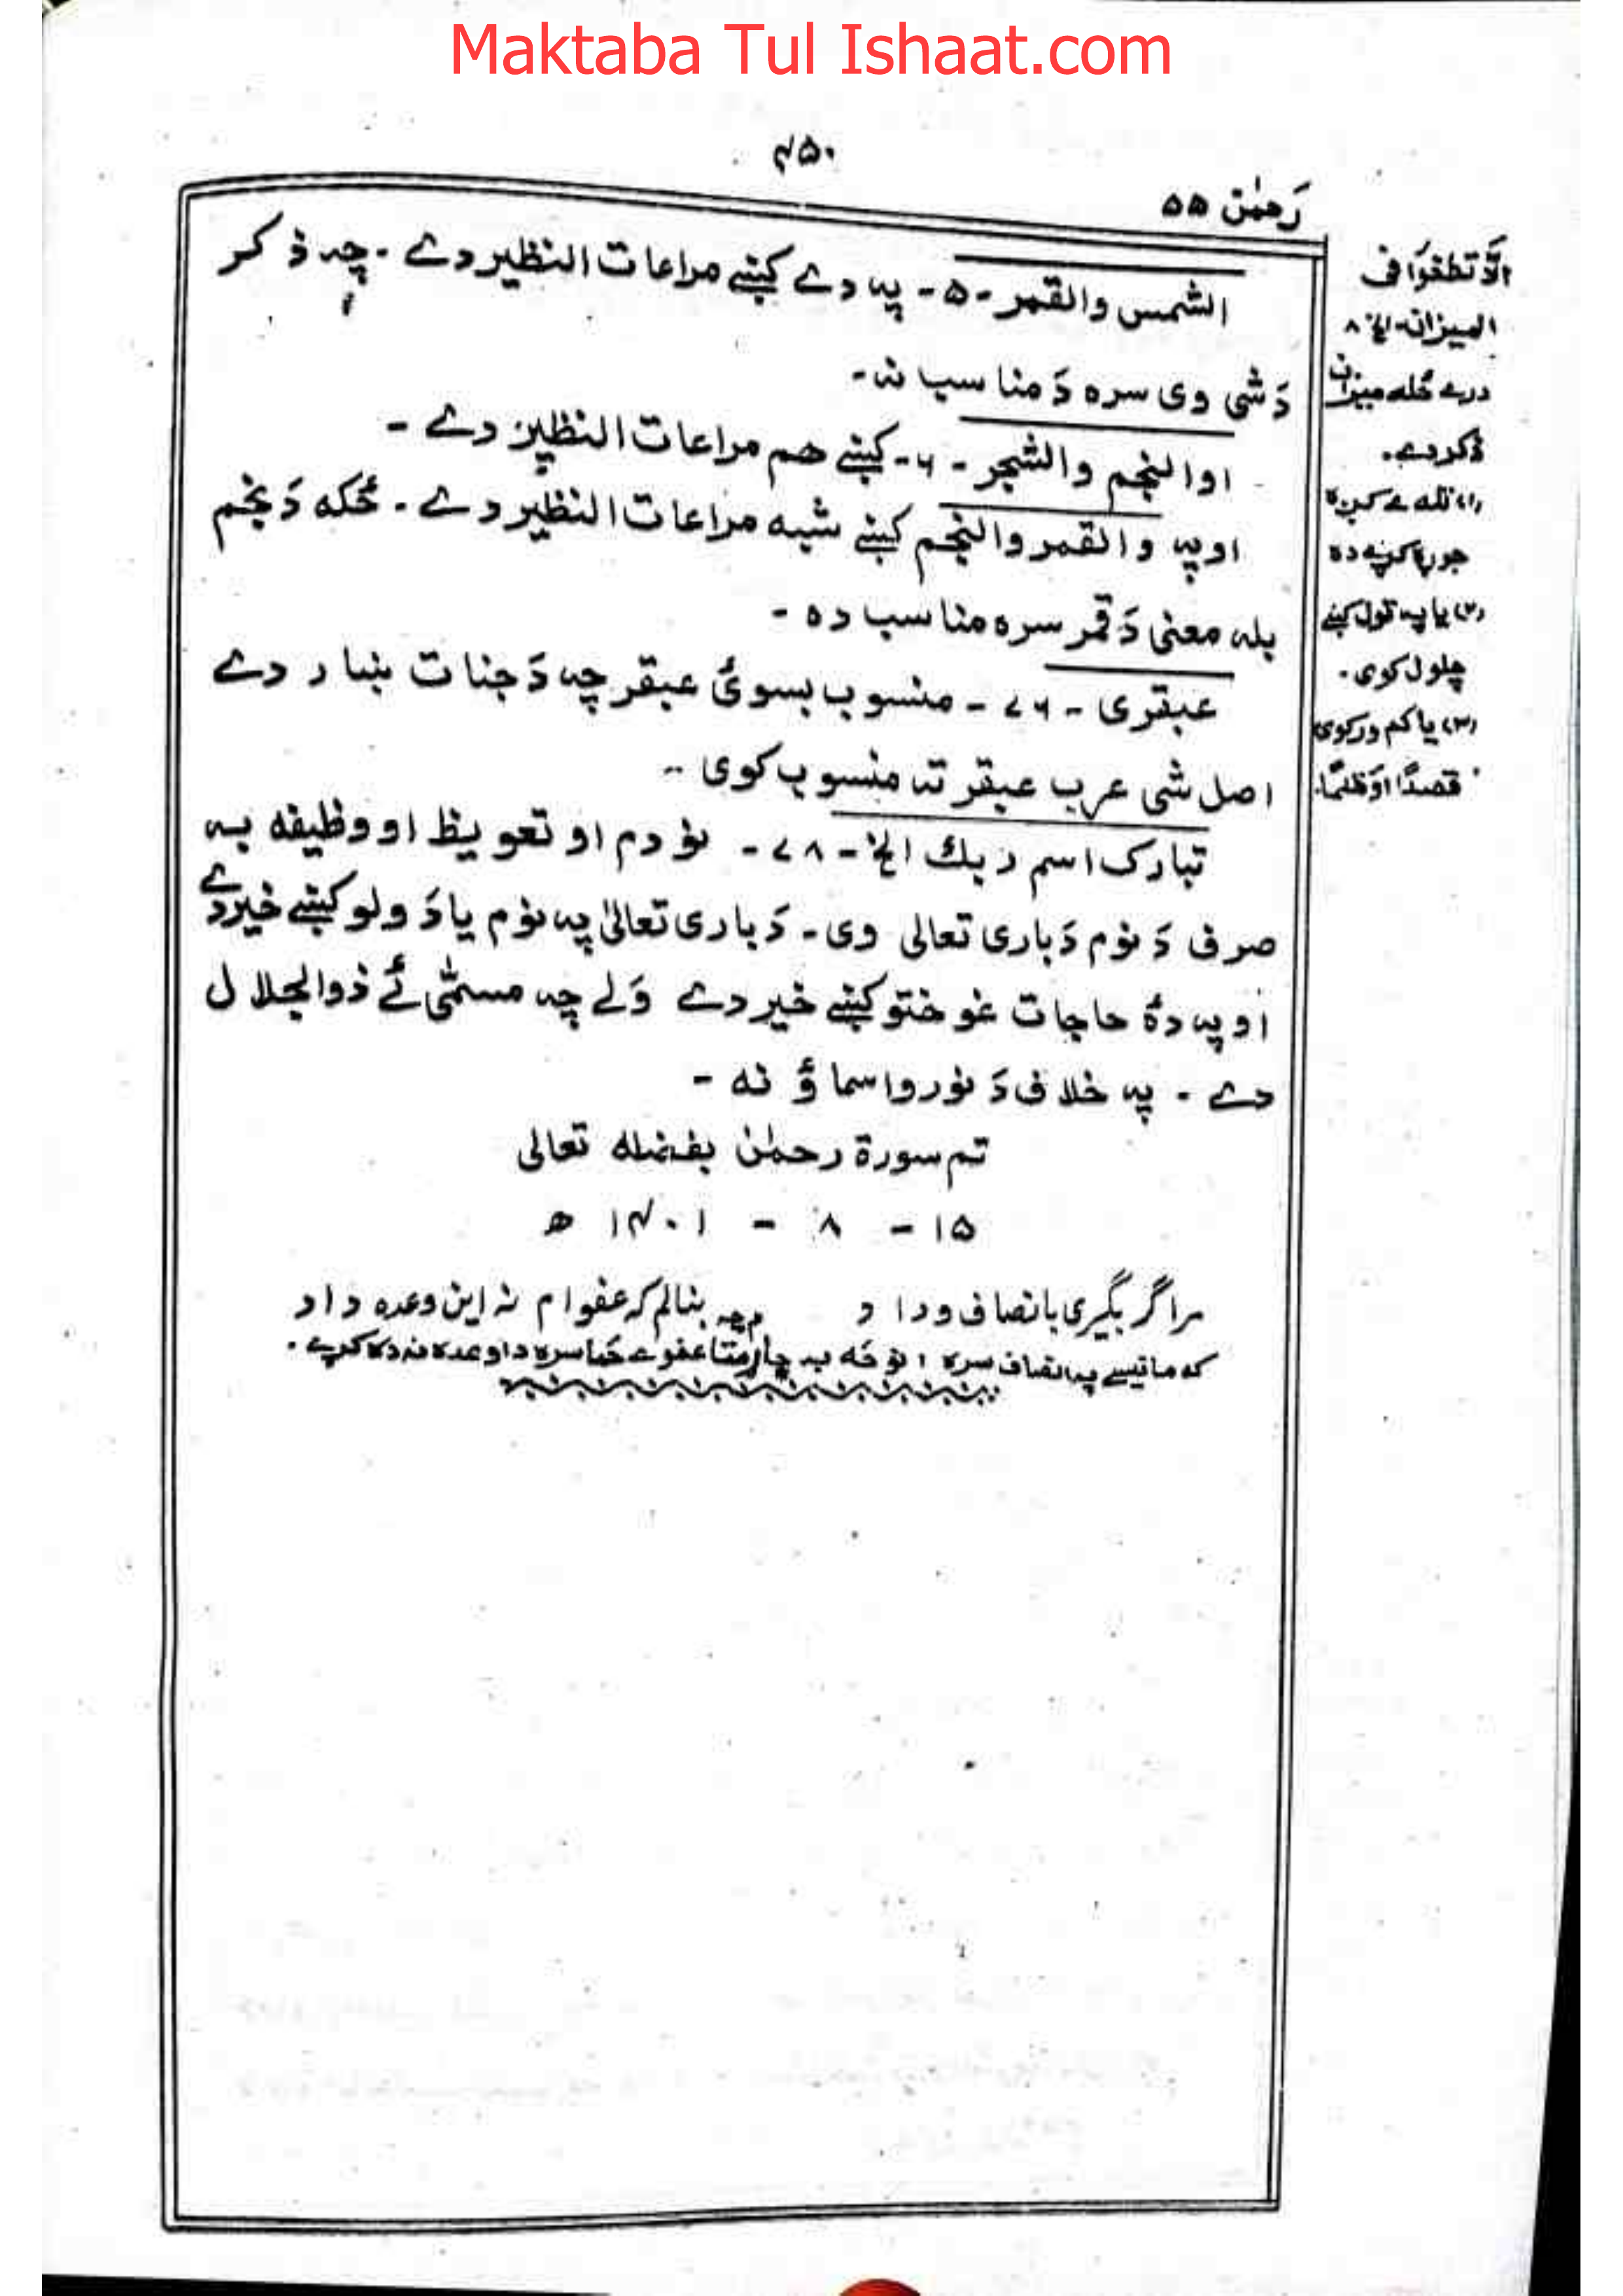 Maktaba Tul Ishaat.com
۴۵۰
رَحمٰن ۵۵
الشمس والقمر - ۵ - په دے کښے مراعات النظیر دے - چه ذکر
دَ شی وی سره دَ مناسباته -
او النجم والشجر - ۶ - کښے هم مراعات النظیر دے -
او په والقمر والنجم کښے شبه مراعات النظیر دے - ځکه دَ نجم
بله معنی دَ قمر سره مناسب ده -
عبقری - ۷۶ - منسوب بسوئ عبقر چه دَ جنات ښار دے
اصل شی عرب عبقر ته منسوب کوی -
تبارک اسم ربك الخ - ۷۸ - نو دم او تعویظ او وظیفه به
صرف دَ نوم دَ باری تعالی وی - دَ باری تعالیٰ په نوم یادَ ولو کښے خیر دے
او په دهٔ حاجات غوختو کښے خیر دے وَلے چه مسمّٰی ئے ذوالجلال
دے - په خلاف دَ نورو اسماؤ نه -
تم سورة رحمٰن بفضله تعالی
۱۵ - ۸ - ۱۴۰۱ ھ
مرا گر بگیری بانصاف و داد
بنالم که عفوام نه این وعده داد
که مانیسے په انصاف سره نو خه به چارمتا عفوے خما سره دا وعده نه ده کړے -
الَّا تطغوَا فی
المیزان - الخ ۸
درے ځله میزان
ذکر دے -
(۱) تله ے کږه
جوړه کړے ده
(۲) یا په تول کښے
چلول کوی -
(۳) یا کم ورکوی
قصدًا او ظلمًا -